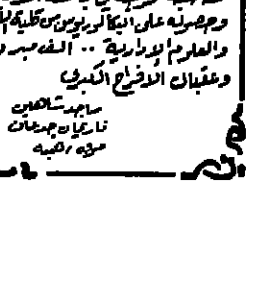 وحصوله على البكالوريوس من كلية
والعلوم الإدارية .. ألف مبر
وعقبال الأفراح الكبرى
ماجد شاهين
ناريمان جدعان